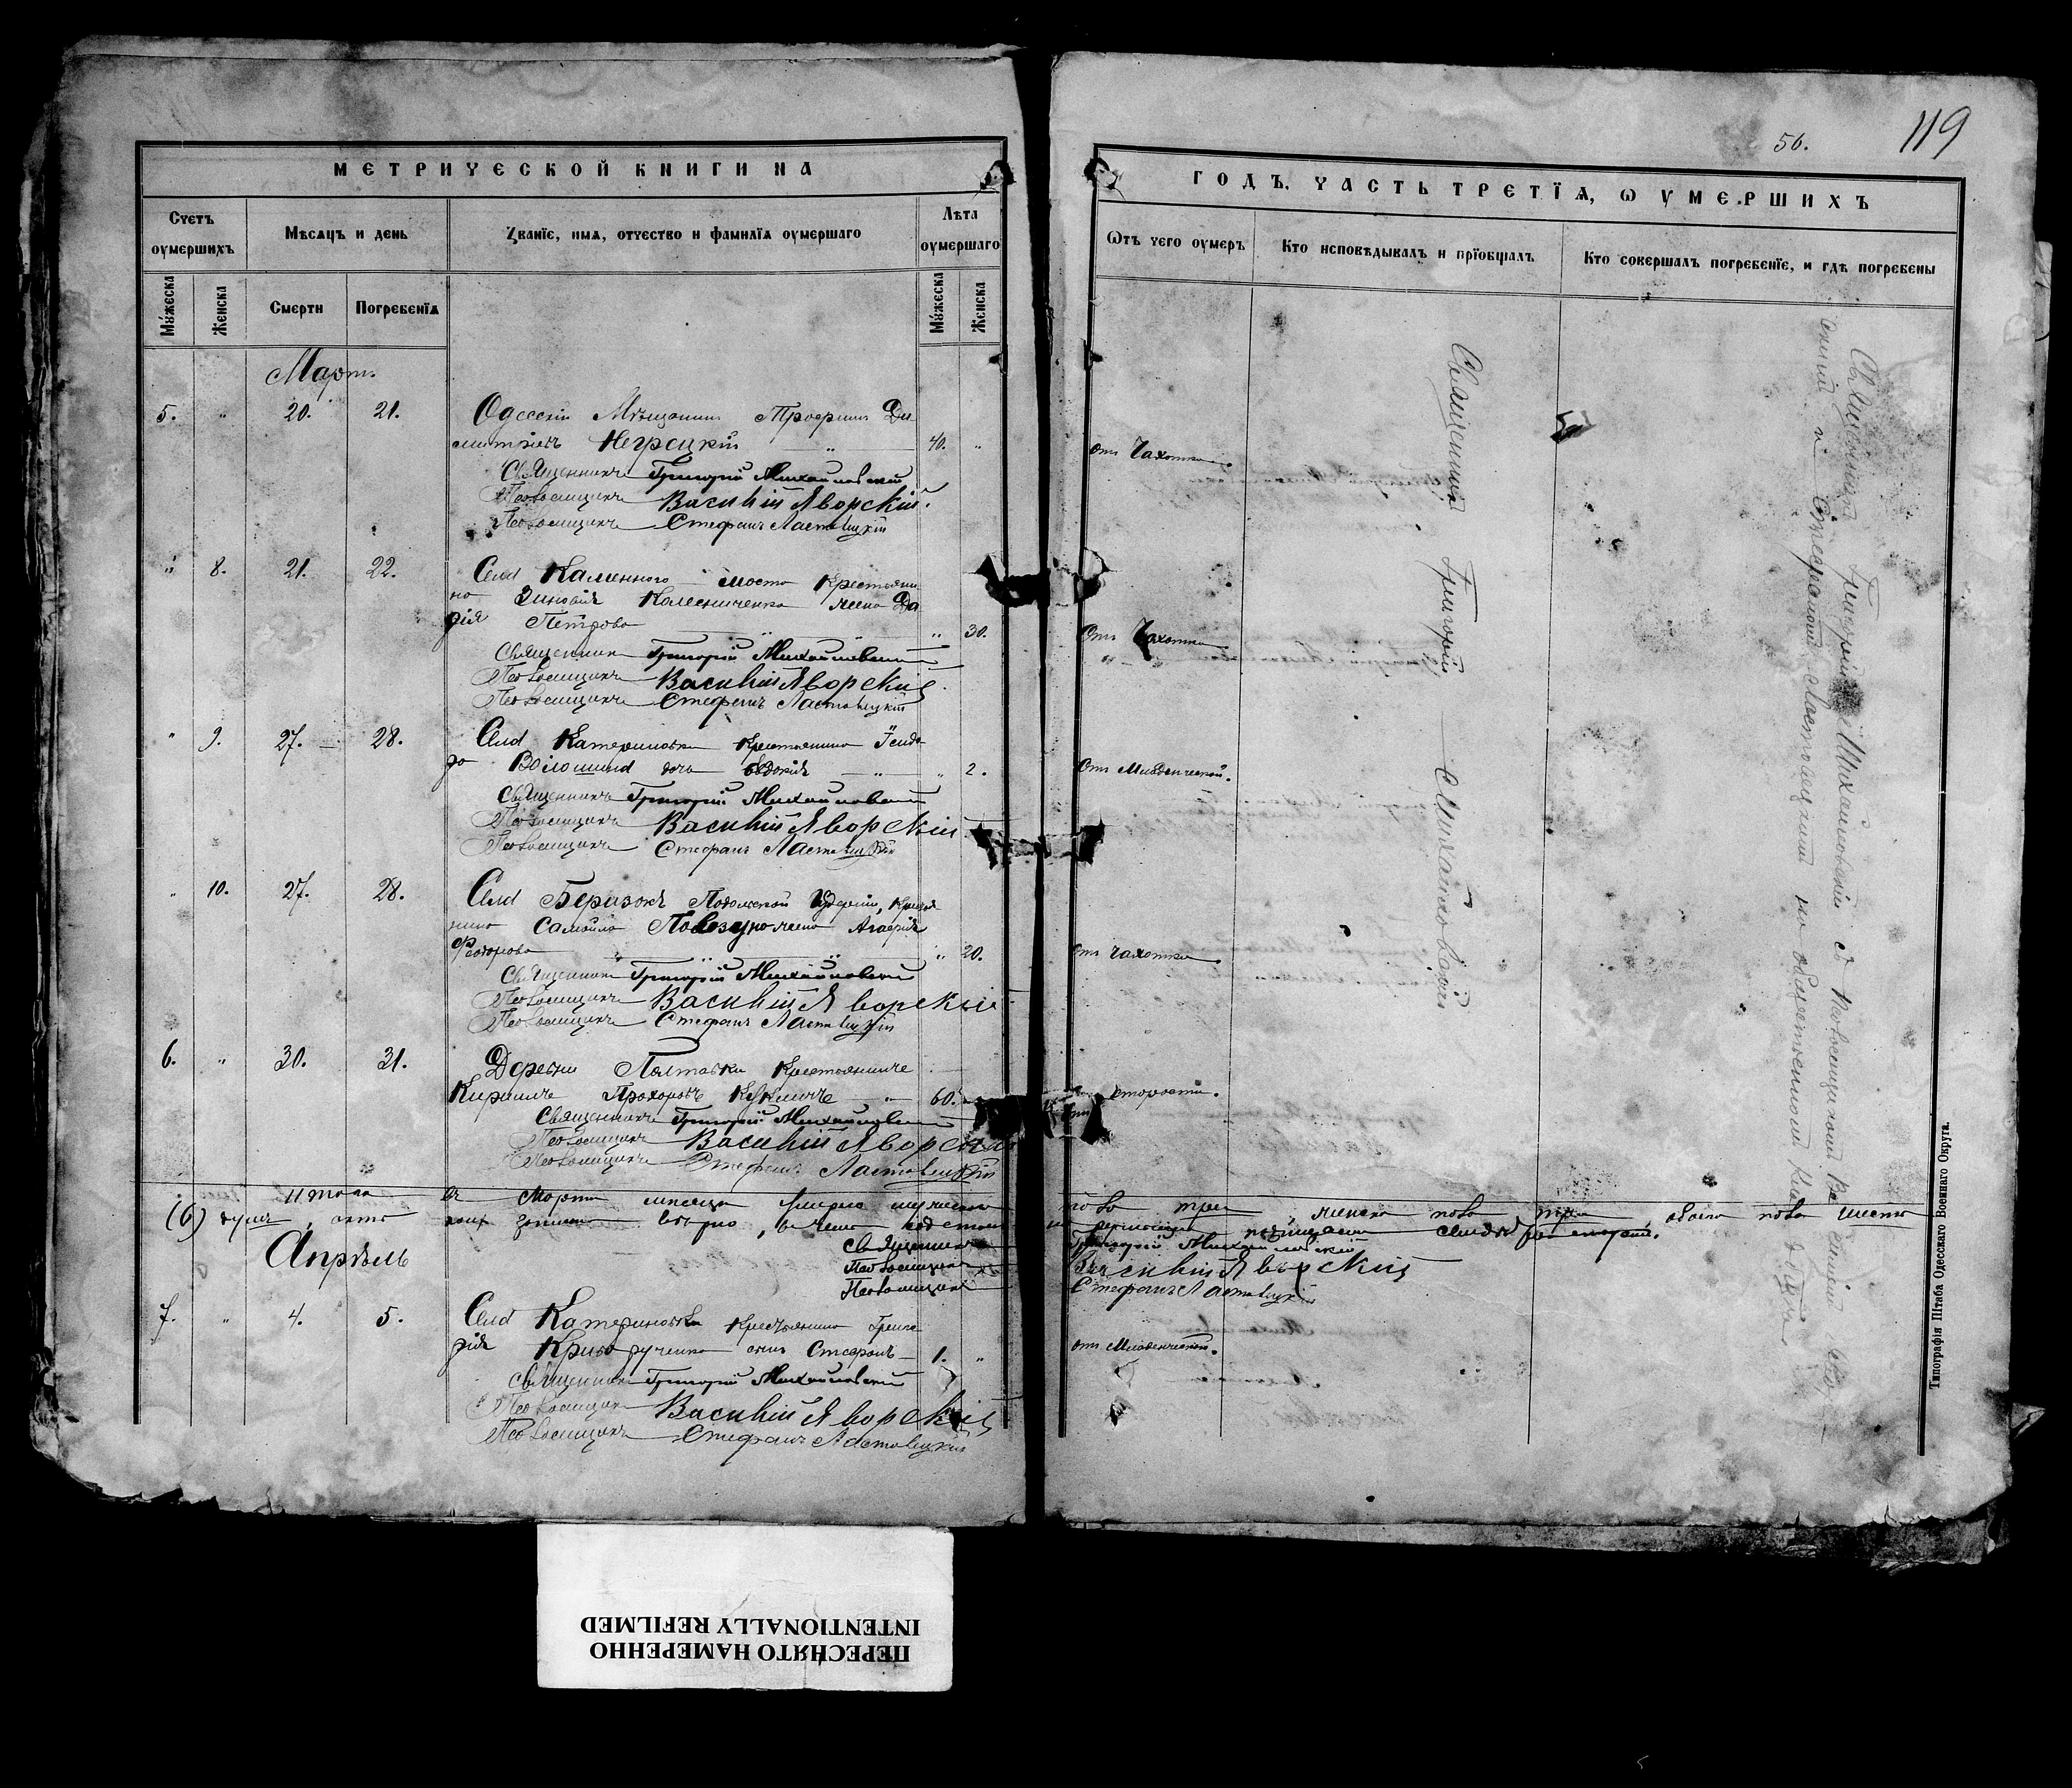 МЕТРИЧЕСКОЙ КНИГИ НА
Счетъ оумершихъ
Мѣсяцъ и день
Званїе, имѧ, отчество и фамилїѧ оумершаго
Лѣта оумершаго
Мꙋжеска
Женска
Смерти
Погребенїѧ
Мꙋжеска
Женска
Мартъ
5. " 20. 21. Одесскій Мѣщанинъ Трофимъ Ди-
митріевъ Негрецкій " 40. "
Священникъ Григорій Михайловскій
Псаломщикъ Василій Яворскій
Псаломщикъ Стефанъ Ластовецкій
" 8. 21. 22. Села Каменного моста Крестьяни-
на Зиновія Колесниченка жена Да-
рія Петрова " 30.
Священникъ Григорій Михайловскій
Псаломщикъ Василій Яворскій
Псаломщикъ Стефанъ Ластовецкій
" 9. 27. 28. Села Катериновки Крестьянина Ісидо-
ра Волошина дочь Евдокія " 2.
Священникъ Григорій Михайловскій
Псаломщикъ Василій Яворскій
Псаломщикъ Стефанъ Ластовецкій
" 10. 27. 28. Села Подольской Губерніи,
Самойла жена
Федорова " 20.
Священникъ Григорій Михайловскій
Псаломщикъ Василій Яворскій
Псаломщикъ Стефанъ Ластовецкій
6. " 30. 31. Деревни Полтавки Крестьянинъ
Кириллъ Прохоровъ " 60.
Священникъ Григорій Михайловскій
Псаломщикъ Василій Яворскій
Псаломщикъ Стефанъ Ластовецкій
Итого въ Мартѣ мѣсяцѣ умерло мужеска
(6) душъ,
Священникъ
Псаломщикъ
Псаломщикъ
Апрѣль
7. " 4. 5. Села Катериновки Крестьянина Григо-
рія Криворученка сынъ Стефанъ 1. "
Священникъ Григорій Михайловскій
Псаломщикъ Василій Яворскій
Псаломщикъ Стефанъ Ластовецкій
56.
119
ГОДЪ, ЧАСТЬ ТРЕТЇѦ, Ѡ УМЕРШИХЪ
Ѿтъ чего оумеръ
Кто исповѣдывалъ и прїобщалъ
Кто совершалъ погребенїе, и гдѣ погребены
Отъ Чахотки.
Отъ Чахотки
Отъ Младенческой.
отъ чахотки
отъ старости.
пола три, женска пола три обоего пола шесть
Григорій Михайловскій
Василій Яворскій
Стефанъ Ластовецкій
отъ Младенческой.
Священникъ Григорій Михайловскій
Священникъ Григорій Михайловскій съ Псаломщиками Василій
и Стефаномъ Ластовецкимъ на общественномъ
Типографія Штаба Одесскаго Военнаго Округа.
ПЕРЕСНЯТО НАМЕРЕННО
INTENTIONALLY REFILMED